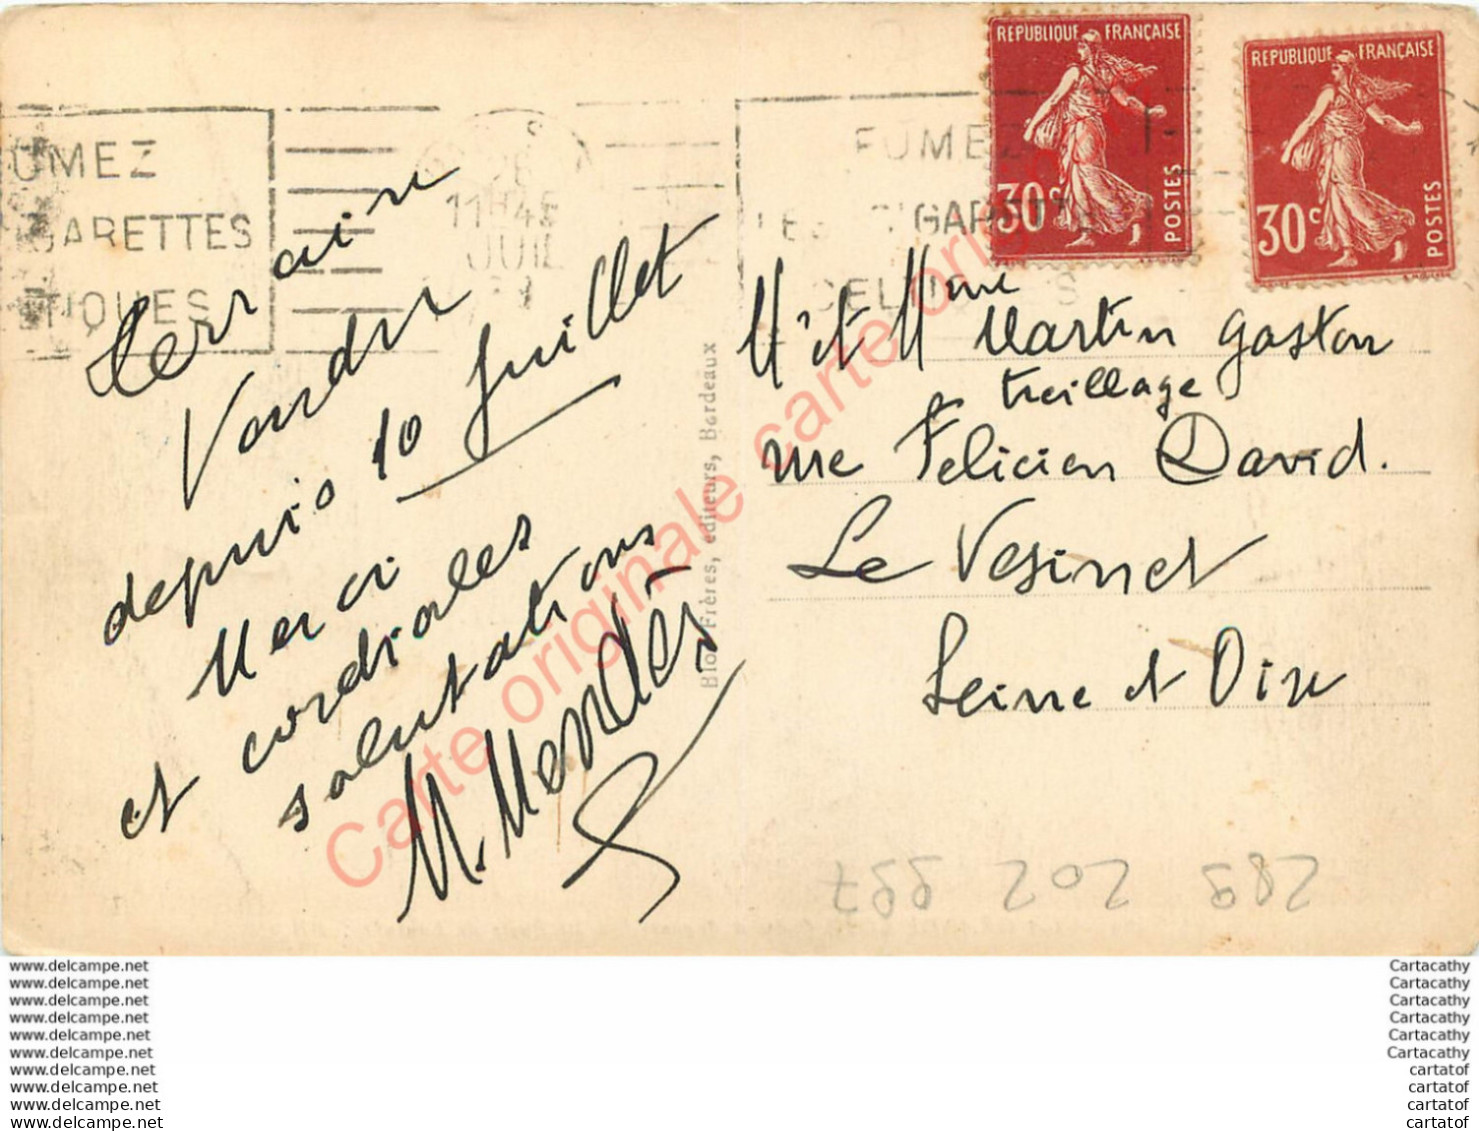 REPUBLIQUE FRANÇAISE
30c
POSTES
REPUBLIQUE FRANÇAISE
30c
POSTES
UMEZ
GARETTES
TIQUES
11H45
JUIL
FUMEZ
LES CIGARETTES
CELTIQUES
terrain
Vendu
depuis 10 Juillet
Merci
et cordiales
salutations
M. Mendès
Bloc Frères, éditeurs, Bordeaux
M et Mme Martin Gaston
treillage
rue Felicien David.
Le Vesinet
Seine et Oise
289 202 997
Carte originale carte originale
www.delcampe.net
www.delcampe.net
www.delcampe.net
www.delcampe.net
www.delcampe.net
www.delcampe.net
www.delcampe.net
www.delcampe.net
www.delcampe.net
www.delcampe.net
Cartacathy
Cartacathy
Cartacathy
Cartacathy
Cartacathy
Cartacathy
cartatof
cartatof
cartatof
cartatof